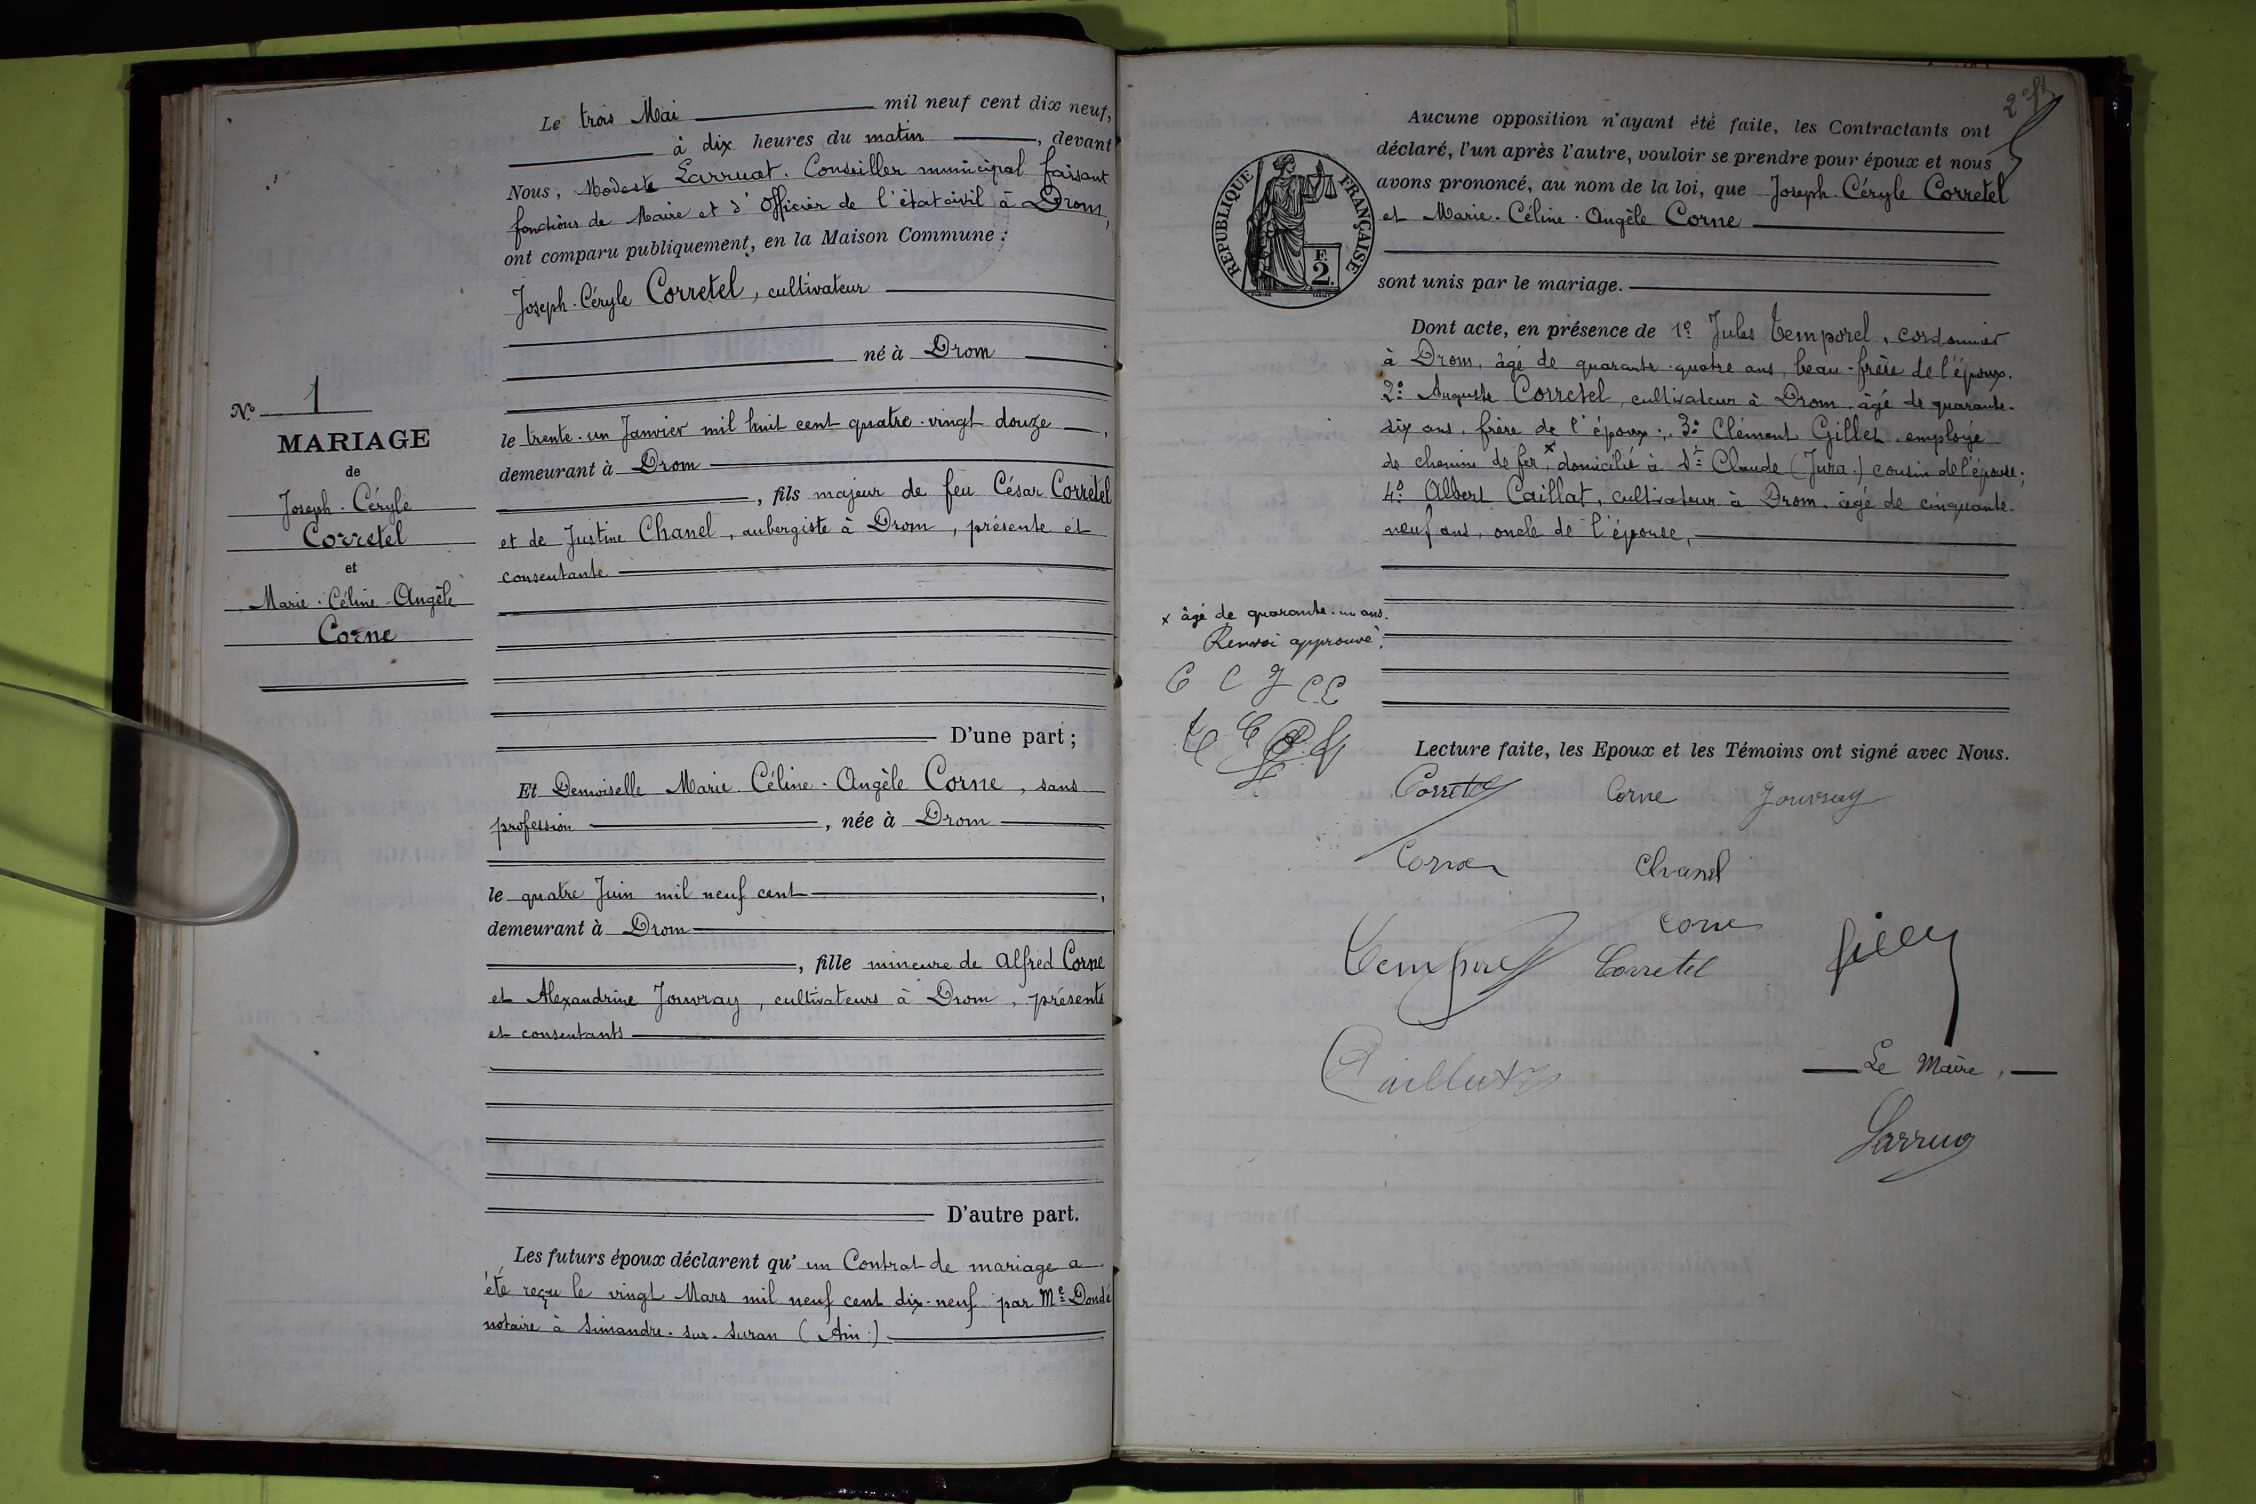 Le trois Mai mil neuf cent dix neuf,
à dix heures du matin, devant
Nous, Modeste Larruat. Conseiller municipal faisant
fonctions de Maire et d'Officier de l'état civil à Drom,
ont comparu publiquement, en la Maison Commune :
Joseph. Céryle Corretel, cultivateur
né à Drom
le trente. un Janvier mil huit cent quatre. vingt douze,
demeurant à Drom
, fils majeur de feu César Corretel
et de Justine Chanel, aubergiste à Drom, présente et
consentante
D'une part ;
Et Demoiselle Marie. Céline. Angèle Corne, sans
profession, née à Drom
le quatre Juin mil neuf cent,
demeurant à Drom
, fille mineure de Alfred Corne
et Alexandrine Jouvray, cultivateurs à Drom, présents
et consentants
D'autre part.
Les futurs époux déclarent qu'un Contrat de mariage a
été reçu le vingt Mars mil neuf cent dix-neuf par Me Dondé
notaire à Simandre. sur. Suran (Ain.)
No 1
MARIAGE
de
Joseph. Céryle
Corretel
et
Marie. Céline. Angèle
Corne
2 ft
RÉPUBLIQUE FRANÇAISE
F.
2.
Aucune opposition n'ayant été faite, les Contractants ont
déclaré, l'un après l'autre, vouloir se prendre pour époux et nous
avons prononcé, au nom de la loi, que Joseph. Céryle Corretel
et Marie. Céline. Angèle Corne
sont unis par le mariage.
Dont acte, en présence de 1o Jules Temporel, cordonnier
à Drom, âgé de quarante. quatre ans, beau-frère de l'époux.
2o Auguste Corretel, cultivateur à Drom, âgé de quarante.
six ans, frère de l'époux ; 3o Clément Gillet, employé
de chemin de fer x domicilié à St Claude (Jura.) cousin de l'épouse ;
4o Albert Caillat, cultivateur à Drom, âgé de cinquante.
neuf ans, oncle de l'épouse,
x âgé de quarante. un ans.
Renvoi approuvé.
C C J C C
Lecture faite, les Epoux et les Témoins ont signé avec Nous.
Corretel Corne Jouvray
Corne Chanel
Corne
Temporel Corretel Gillet
Caillat
Le Maire,
Larruat